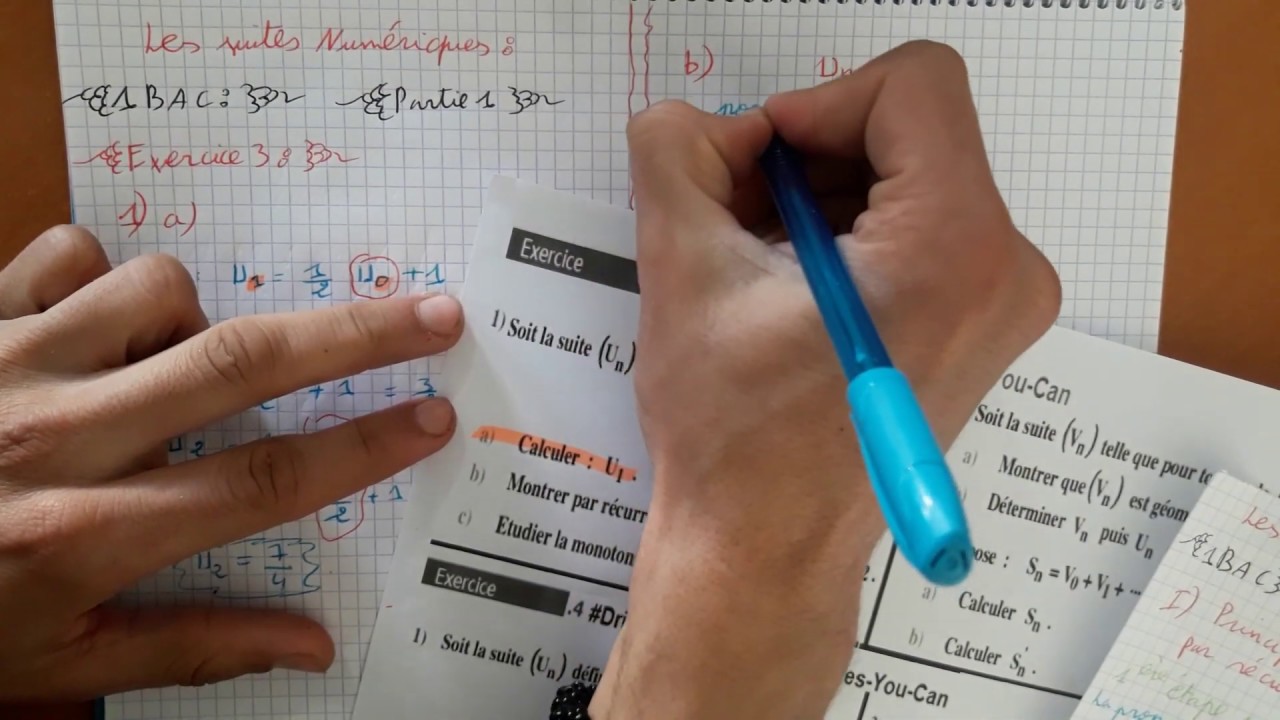 Les suites Numériques :
1 BAC : Partie 1
Exercice 3 :
1) a)
U1 = 1/2 U0 + 1
+ 1 = 3
U2
2 + 1
U2 = 7/4
b) Un
Exercice
1) Soit la suite (Un)
a) Calculer : U1 .
b) Montrer par récurr
c) Etudier la monoton
Exercice .4 #Dri
1) Soit la suite (Un) défi
ou-Can
Soit la suite (Vn) telle que pour to
a) Montrer que (Vn) est géom
Déterminer Vn puis Un
ose : Sn = V0 + V1 + ...
2.
a) Calculer Sn .
b) Calculer S'n .
es-You-Can
Les
1BAC
I) Princi
par réc
1 ère étape
la pro